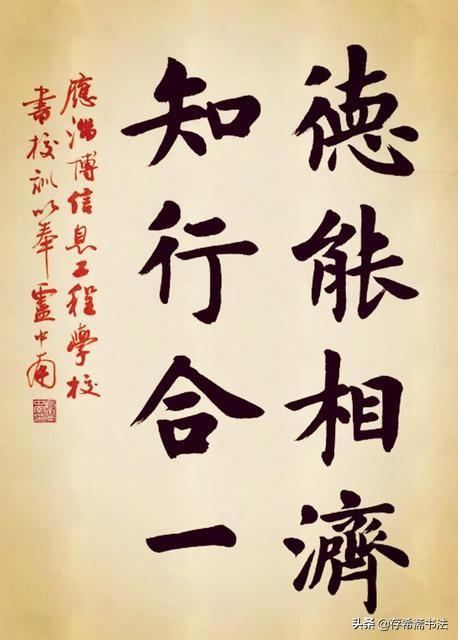 德能相濟
知行合一
應淄博信息工程學校
書校訓以奉盧中南
头条 @存希斋书法